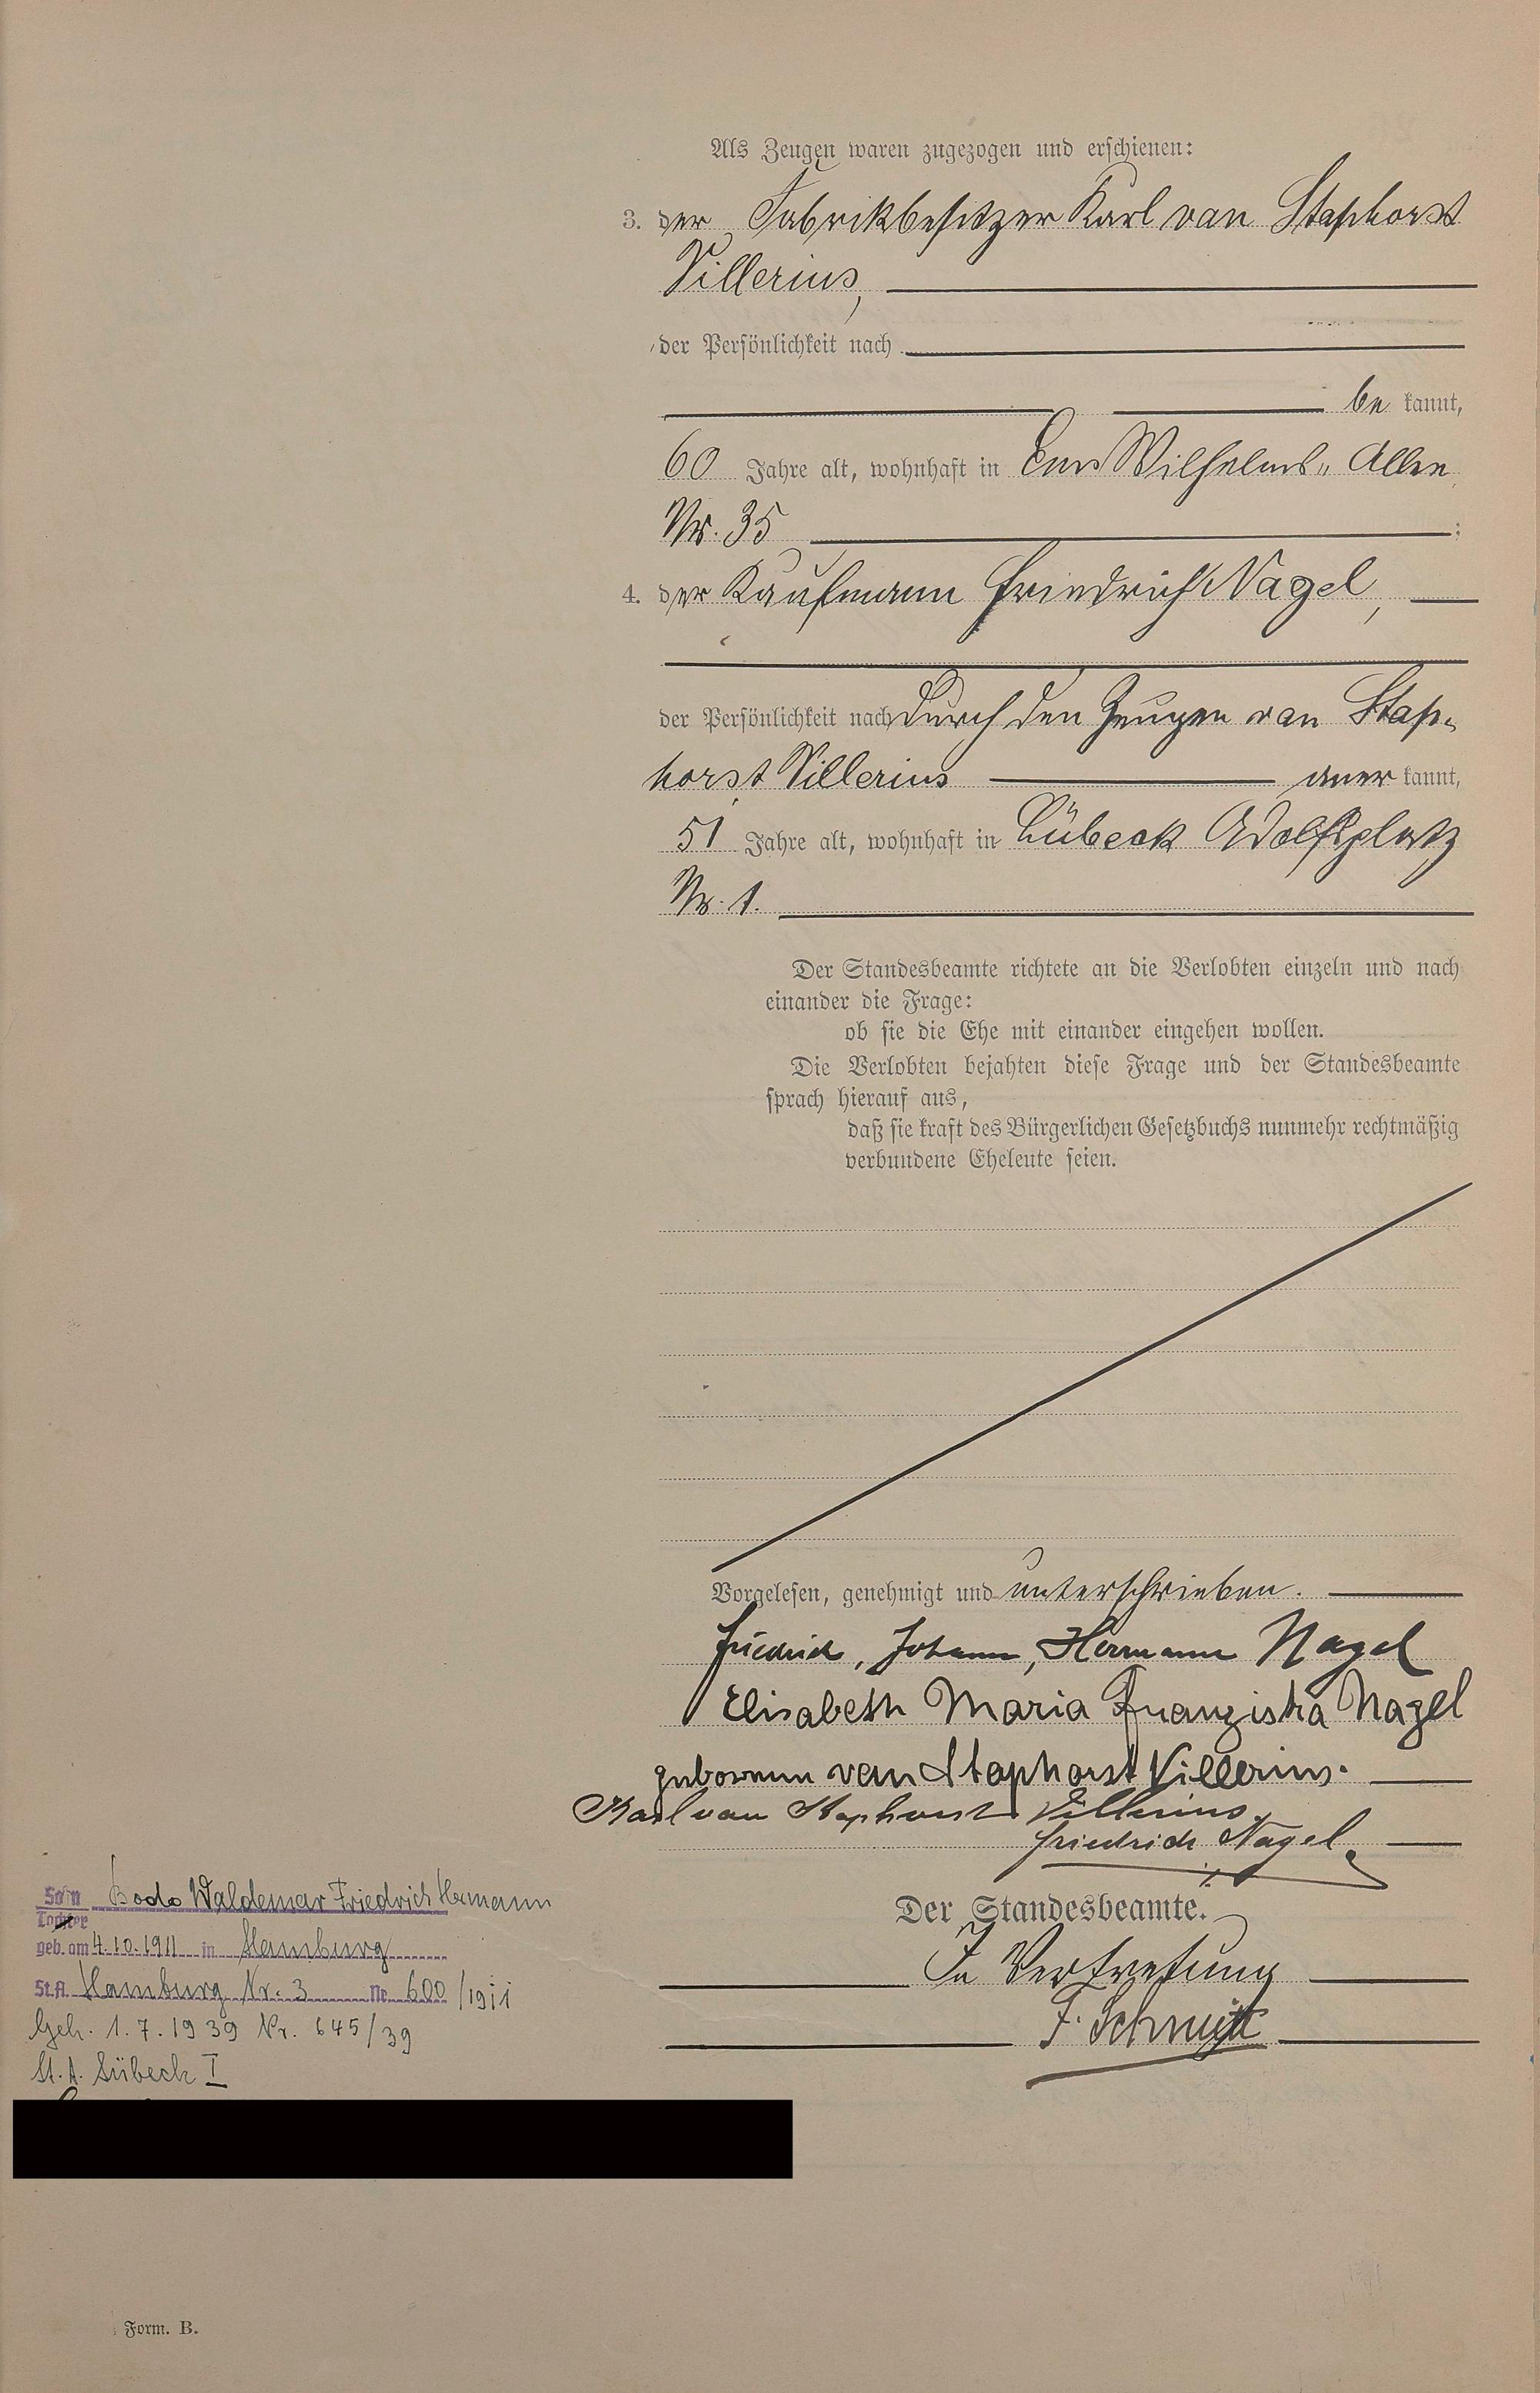 Als Zeugen waren zugezogen und erschienen:
3. der Fabrikbesitzer Karl van Staphorst
Villerius,
der Persönlichkeit nach
be kannt,
60 Jahre alt, wohnhaft in Ems Wilhelms„ Allee
Nr. 35 ;
4. der Kaufmann Friedrich Nagel,
der Persönlichkeit nach durch den Zeugen van Stap-
horst Villerius aner kannt,
51 Jahre alt, wohnhaft in Lübeck Adolfsplatz
Nr. 1.
Der Standesbeamte richtete an die Verlobten einzeln und nach
einander die Frage:
ob sie die Ehe mit einander eingehen wollen.
Die Verlobten bejahten diese Frage und der Standesbeamte
sprach hierauf aus,
daß sie kraft des Bürgerlichen Gesetzbuchs nunmehr rechtmäßig
verbundene Eheleute seien.
Vorgelesen, genehmigt und unterschrieben.
Friedrich, Johann, Hermann Nagel
Elisabeth Maria Franziska Nagel
geborenen van Staphorst Villerius.
Karl van Staphorst Villerius.
Friedrich Nagel.
Der Standesbeamte.
In Vertretung
F. Schmitt
Sohn Bodo Waldemar Friedrich Hermann
Tochter
geb. am 4.10.1911 in Hamburg
St.A. Hamburg Nr. 3 Nr. 600/1911
Geh. 1.7.1939 Nr. 645/39
St. A. Lübeck I
Form. B.